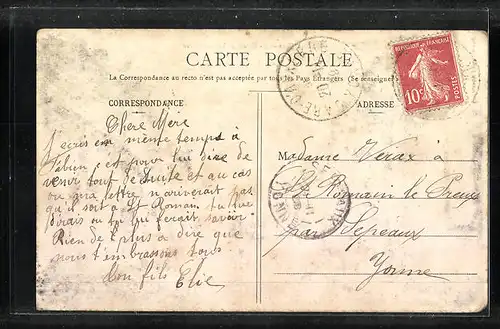 CARTE POSTALE
La Correspondance au recto n'est pas acceptée par tous les Pays Etrangers (Se renseigner
CORRESPONDANCE
ADRESSE
REPUBLIQUE FRANÇAISE
10c
POSTES
Chere Mère
J ecris en même temps à
et pour lui dire de
venir tout de suite et au cas
ou ma lettre n ariverait pas
qu'il soit à St Roman tu
dirais ou tu lui ferait savoir.
Rien de plus a dire que
nous t'embrassons tous.
Ton fils Elie
Madame Verax à
St Romain le Preux
par Sepeaux
Yonne